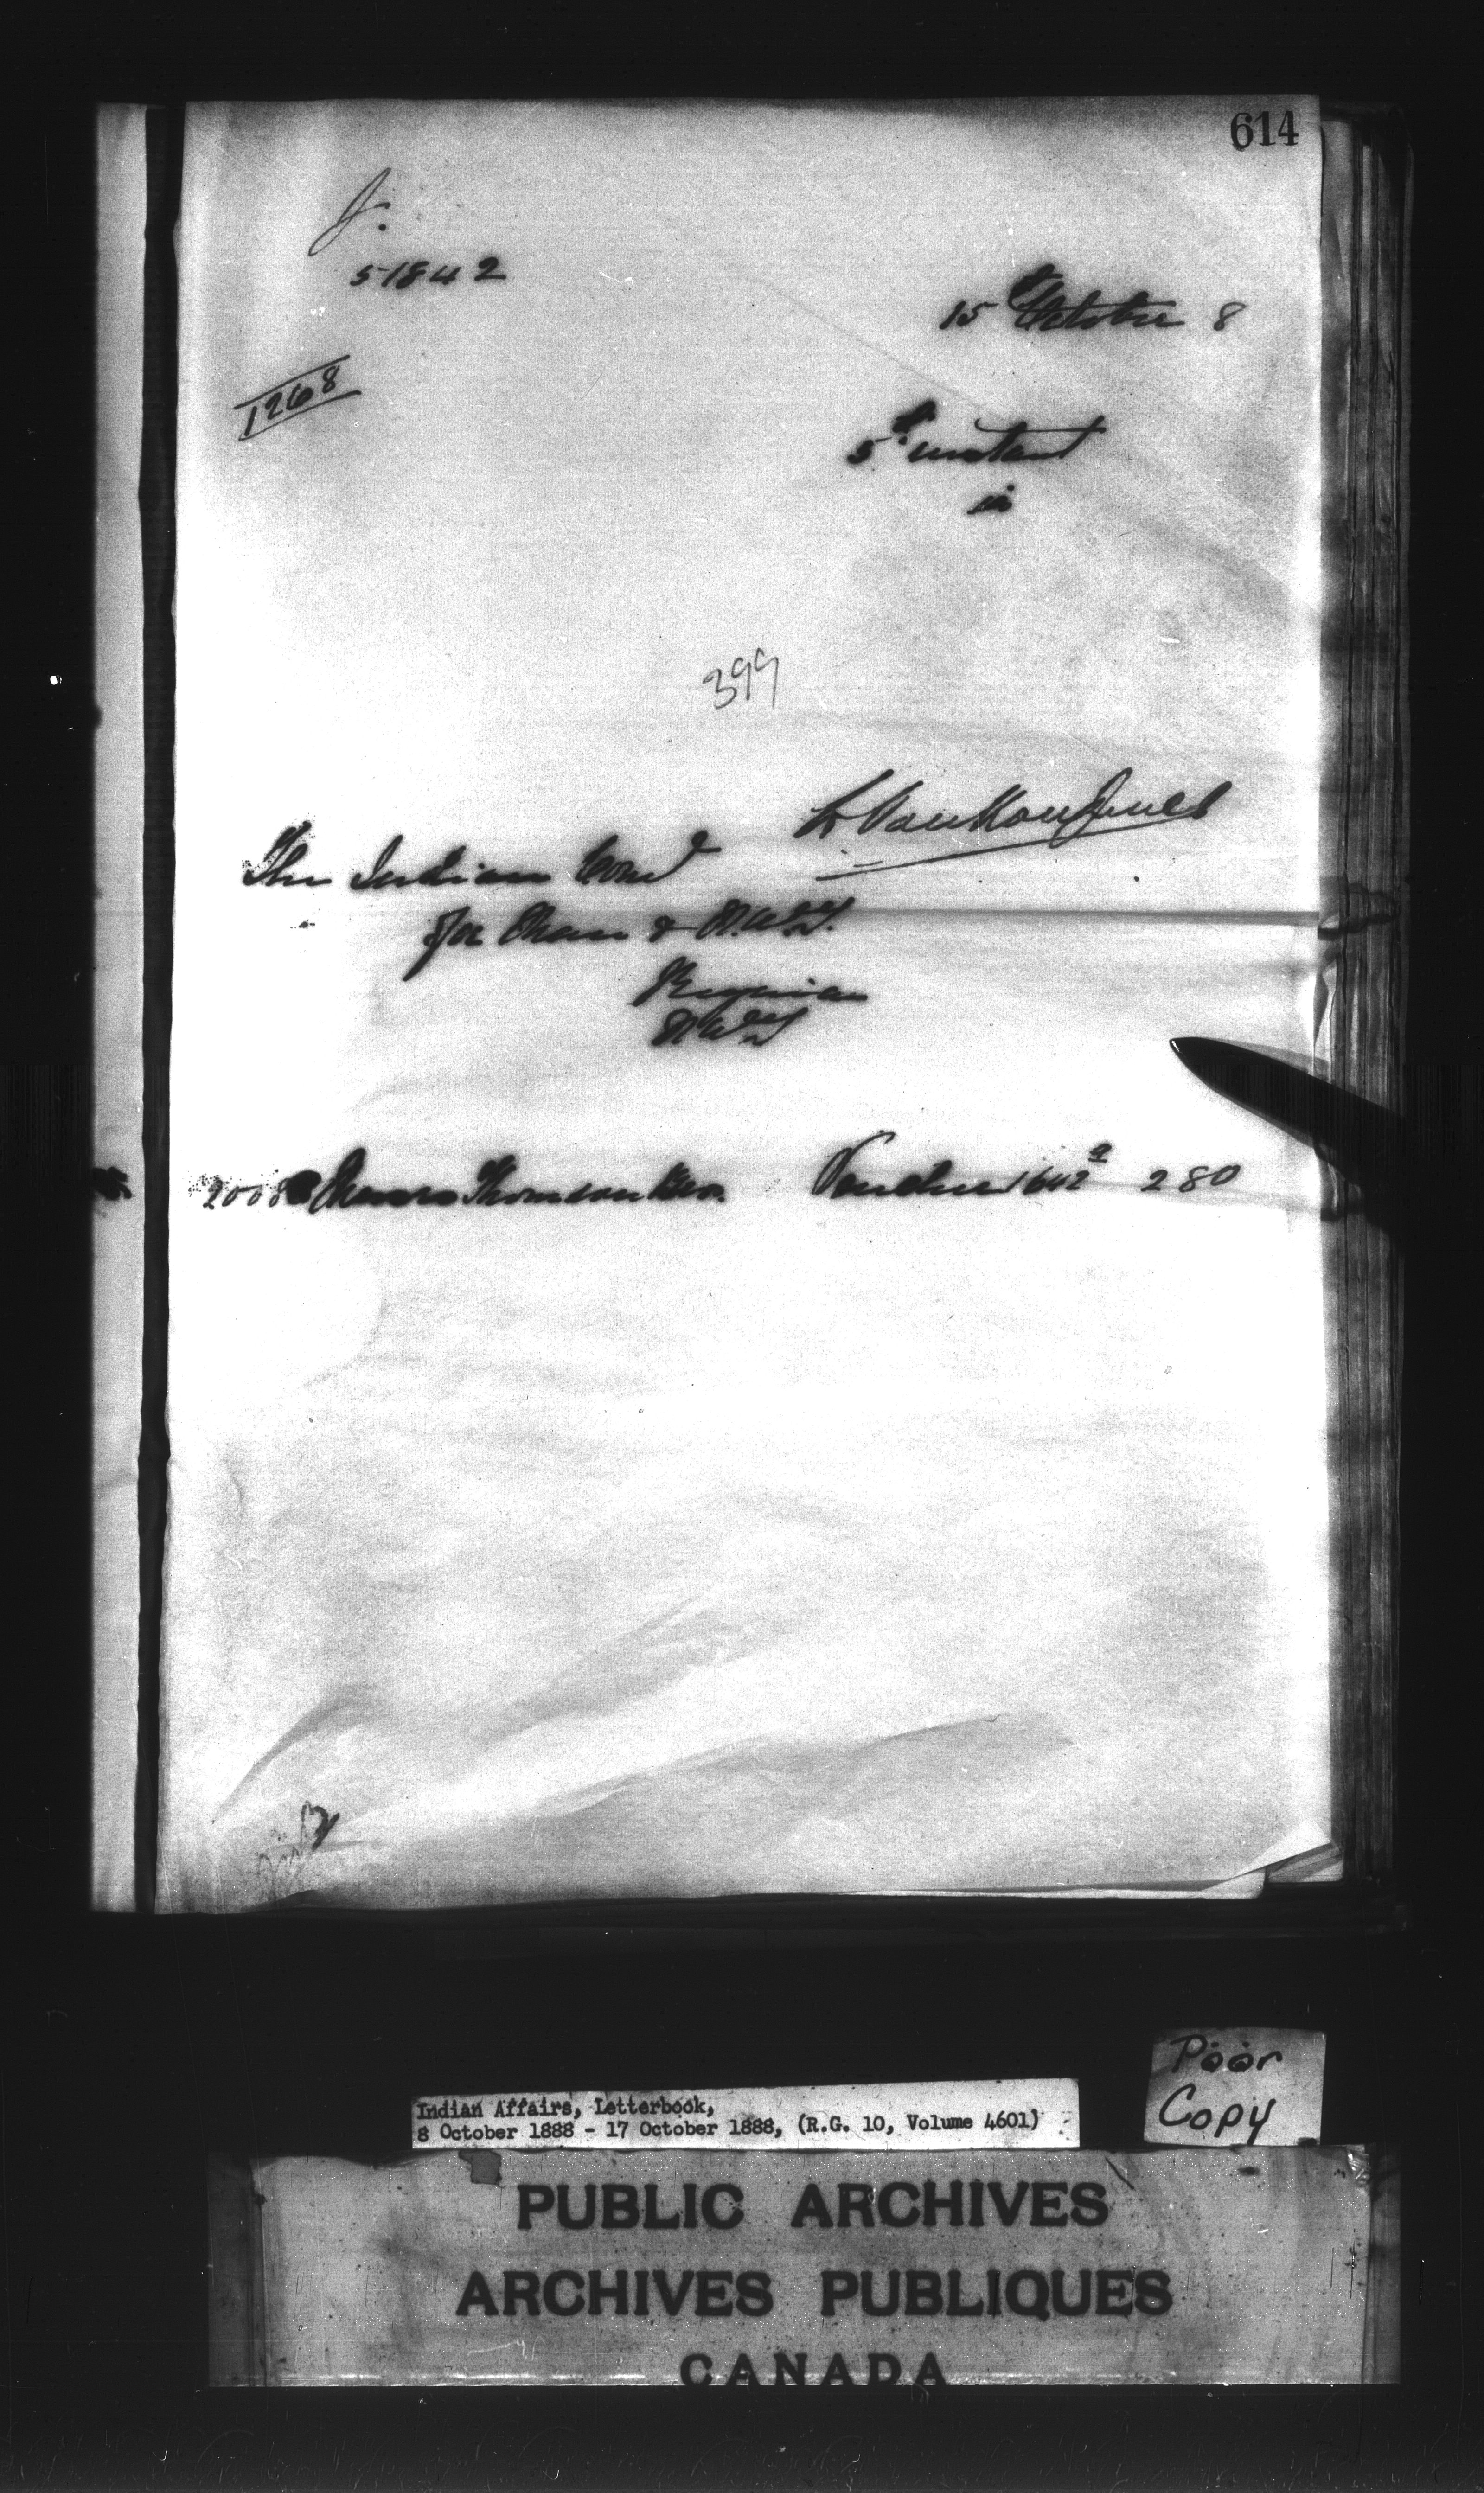 614
J.
51842
15th October 8
1268
5th instant
in
399
L. Vankoughnet
The Indian Comr
for Man & N.W.T.
Regina
N.W.T.
2008 Thomson Bros. Voucher 1602 a 280
Poor
Copy
Indian Affairs, Letterbook,
8 October 1888 - 17 October 1888, (R.G. 10, Volume 4601)
PUBLIC ARCHIVES
ARCHIVES PUBLIQUES
CANADA